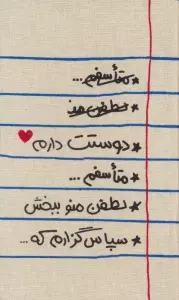 ★ متأسفم...
★ لطفن منو
★ دوستت دارم
★ متأسفم ...
★ لطفن منو ببخش
★ سپاس‌گزارم که...